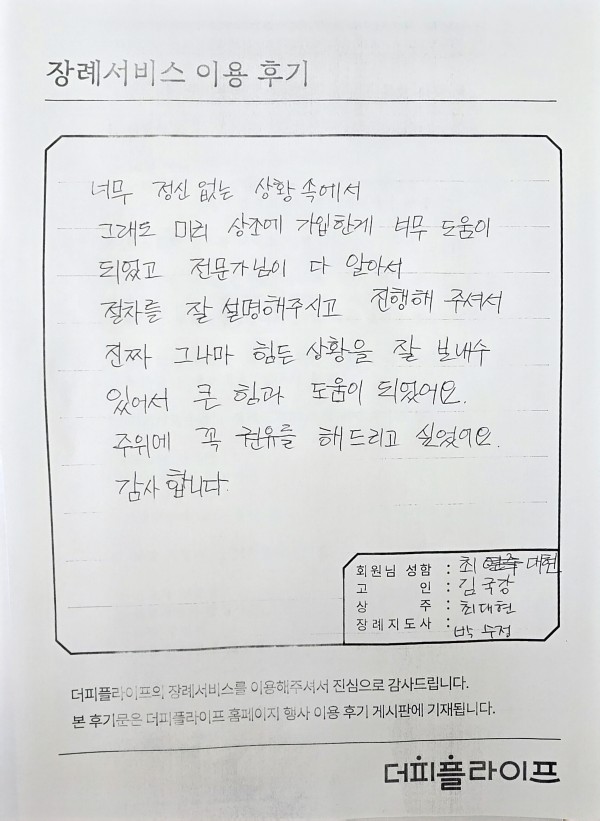 장례서비스 이용 후기
너무 정신 없는 상황 속에서
그래도 미리 상조에 가입한게 너무 도움이
되었고 전문가님이 다 알아서
절차를 잘 설명해주시고 진행해 주셔서
진짜 그나마 힘든 상황을 잘 보내수
있어서 큰 힘과 도움이 되었어요.
주위에 꼭 권유를 해드리고 싶었어요.
감사합니다.
회원님 성함 : 최 대현
고 인 : 김국강
상 주 : 최대현
장례지도사 : 박수정
더피플라이프의 장례서비스를 이용해주셔서 진심으로 감사드립니다.
본 후기문은 더피플라이프 홈페이지 행사 이용 후기 게시판에 기재됩니다.
더피플라이프